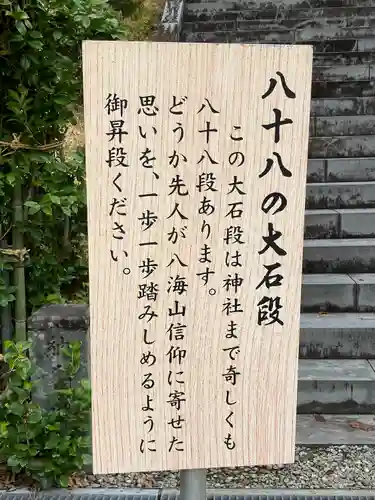 八十八の大石段
この大石段は神社まで奇しくも
八十八段あります。
どうか先人が八海山信仰に寄せた
思いを、一歩一歩踏みしめるように
御昇段ください。